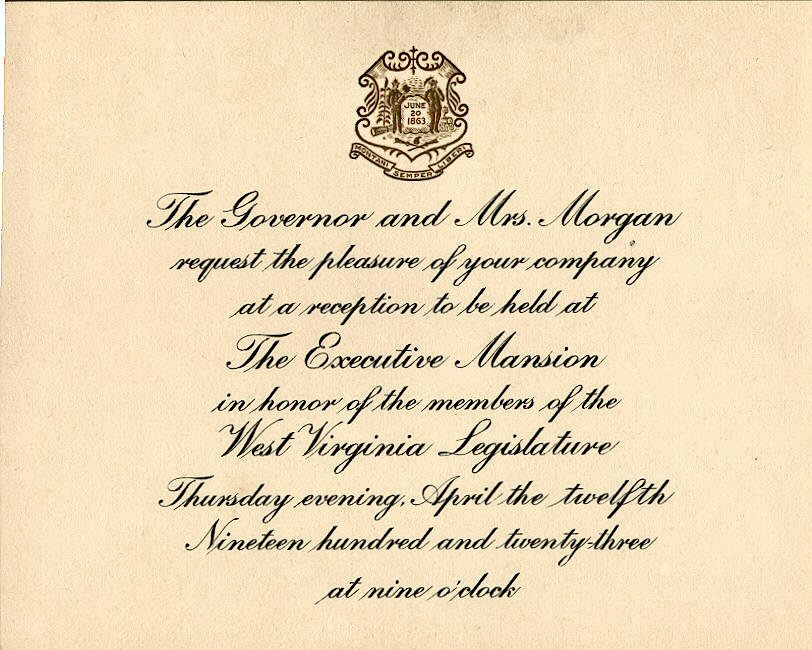 JUNE
20
1863
MONTANI SEMPER LIBERI
The Governor and Mrs. Morgan
request the pleasure of your company
at a reception to be held at
The Executive Mansion
in honor of the members of the
West Virginia Legislature
Thursday evening, April the twelfth
Nineteen hundred and twenty-three
at nine o'clock